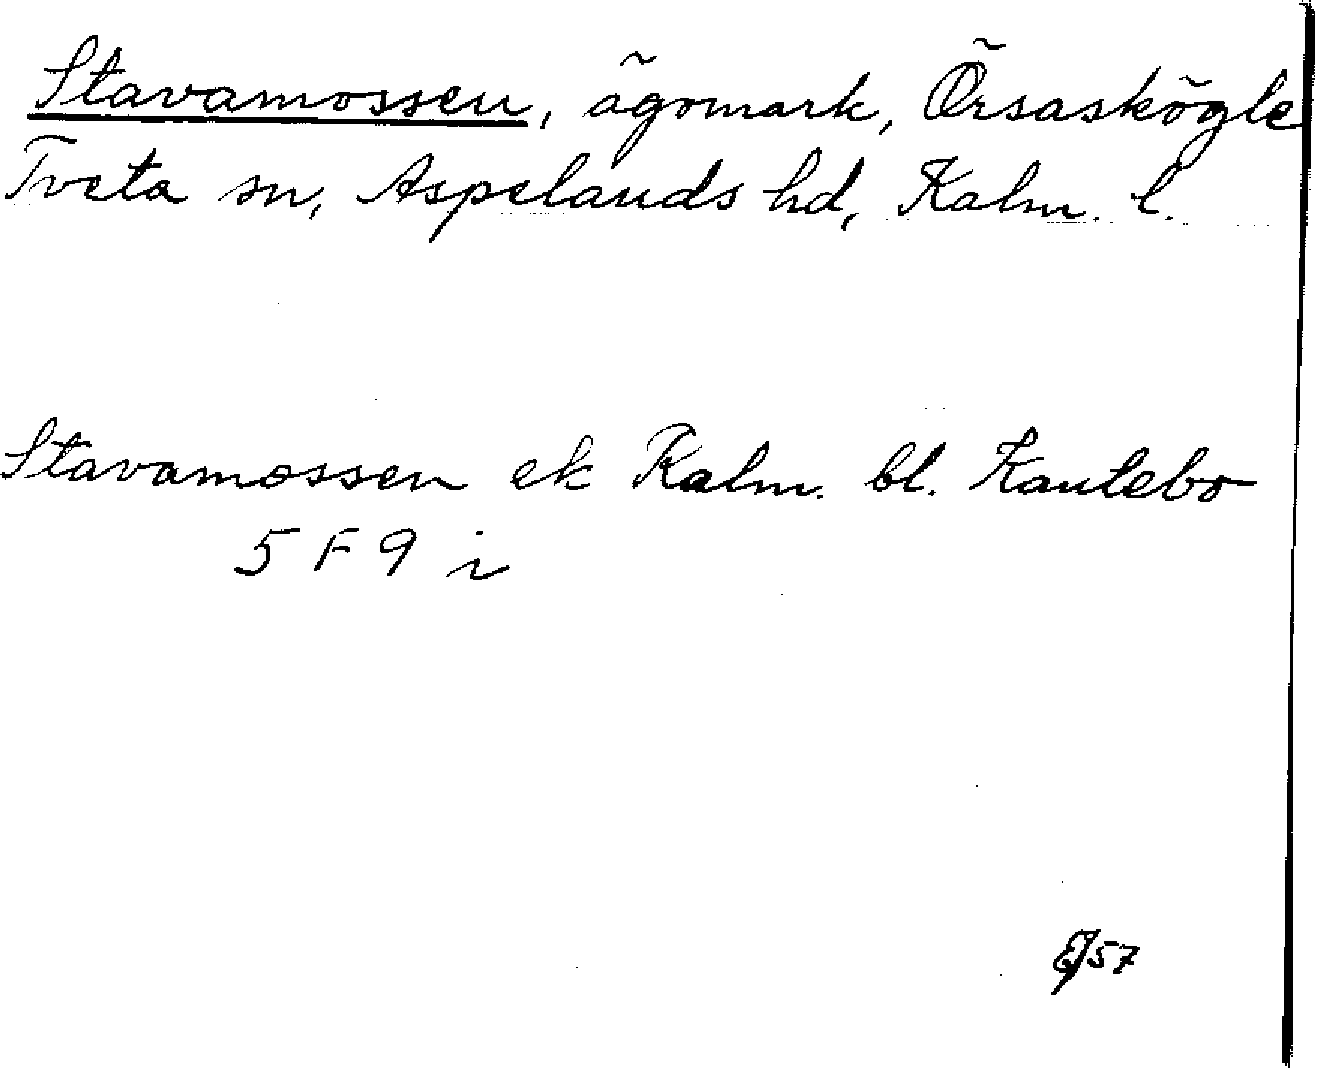 Stavamossen, ägomark, Örsaskögle
Tveta sn, Aspelands hd, Kalm. l.
Stavamossen ek Kalm. bl. Kantebo
5 F 9 i
EJ 57